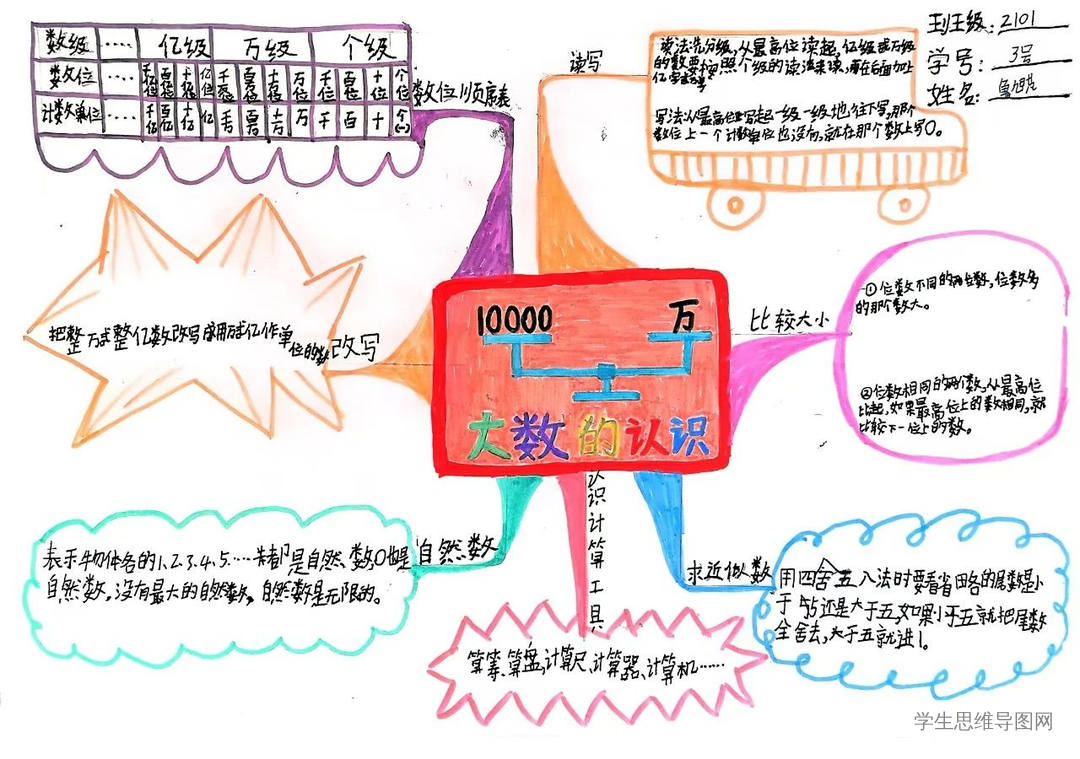 班级:2101
学号:3号
姓名:
数级 …… 亿级 万级 个级
数位 …… 千亿位 百亿位 十亿位 亿位 千万位 百万位 十万位 万位 千位 百位 十位 个位
计数单位 …… 千亿 百亿 十亿 亿 千万 百万 十万 万 千 百 十 个(一)
数位顺序表
读写
读法先分级,从最高位读起,亿级或万级
的数要按照个级的读法来读,再在后面加上
亿字或万字
写法从最高位写起一级一级地往下写,那个
数位上一个计数单位也没有,就在那个数上写0。
把整万或整亿数改写成用万或亿作单位的数
改写
10000 万
大数的认识
比较大小
①位数不同的两个数,位数多
的那个数大。
②位数相同的两个数,从最高位
比起,如果最高位上的数相同,就
比较下一位上的数。
自然数
表示物体各的1.2.3.4.5.…都是自然数,0也是
自然数,没有最大的自然数,自然数是无限的。
认识计算工具
算筹、算盘、计算尺、计算器、计算机……
求近似数
用四舍五入法时要看省略的尾数是小
于5还是大于五如果小于五就把尾数
全舍去,大于五就进1。
学生思维导图网